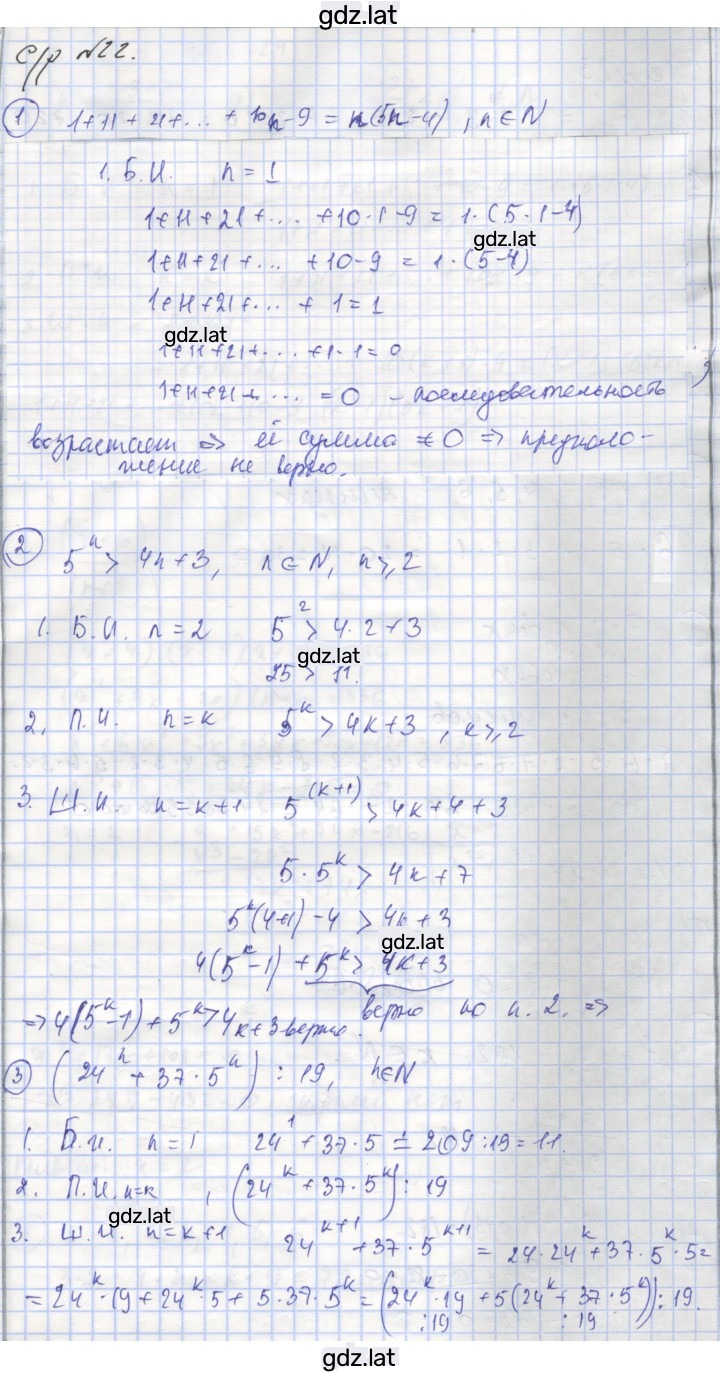 gdz.lat
С/р №22.
① 1+11+21+... + 10n-9 = n(5n-4), n∈N
1. Б.И. n = 1
1+11+21+... +10·1-9 = 1·(5·1-4)
gdz.lat
1+11+21+... +10-9 = 1·(5-4)
1+11+21+... + 1=1
gdz.lat
1+11+21+... +1-1=0
1+11+21+... =0 - последовательность
возрастает ⇒ её сумма ≠0 ⇒ предполо-
жение не верно.
② 5^n > 4n+3, n∈N, n≥2
1. Б.И. n=2 5^2 > 4·2+3
gdz.lat
25 > 11.
2. П.И. n=k 5^k > 4k+3, k≥2
3. Ш.И. n=k+1 5^(k+1) > 4k+4+3
5·5^k > 4k+7
5^k(4+1)-4 > 4k+3
gdz.lat
4(5^k-1)+5^k > 4k+3
верно по п.2. ⇒
⇒ 4(5^k-1)+5^k > 4k+3 верно.
③ (24^n + 37·5^n) ⋮ 19, n∈N
1. Б.И. n=1 24^1+37·5 = 209:19=11.
2. П.И. n=k, (24^k+37·5^k) ⋮ 19
gdz.lat
3. Ш.И. n=k+1 24^(k+1)+37·5^(k+1) = 24·24^k+37·5^k·5=
=24^k·19+24^k·5+5·37·5^k=(24^k·19+5(24^k+37·5^k)) ⋮ 19.
⋮19 ⋮19
gdz.lat